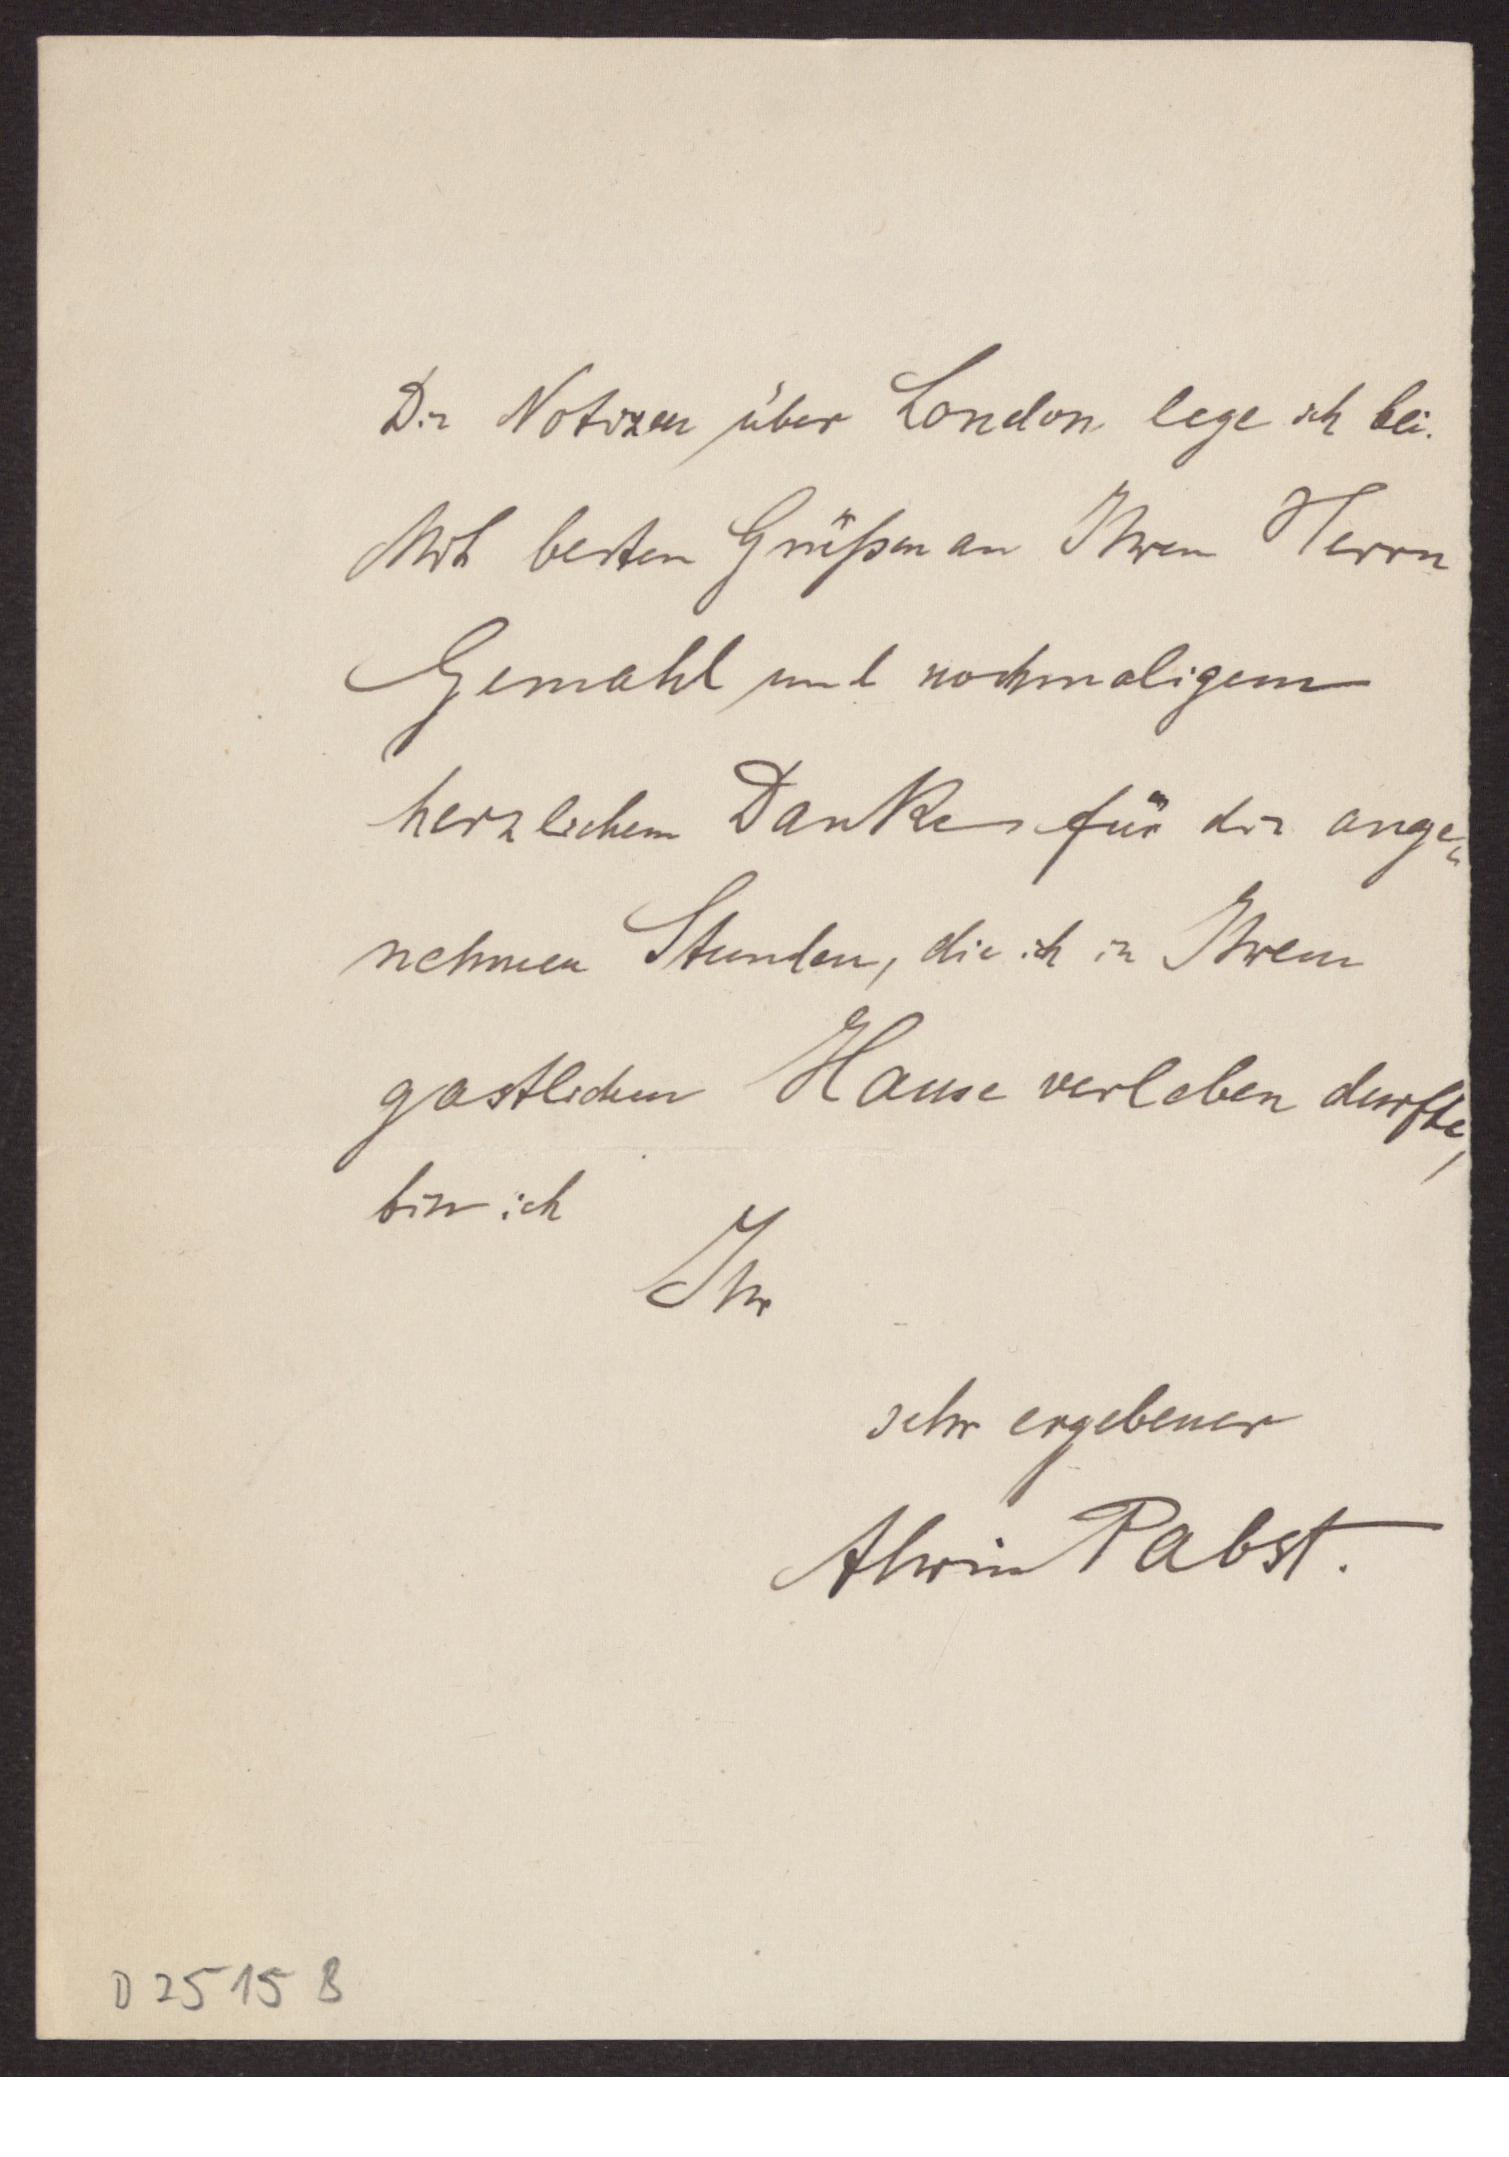 Die Notizen über London lege ich bei.
Mit besten Grüßen an Ihren Herrn
Gemahl und nochmaligem
herzlichem Danke für die ange=
nehmen Stunden, die ich in Ihrem
gastlichen Hause verleben durfte,
bin ich
Ihr
sehr ergebener
Alwin Pabst.
D 2515 B